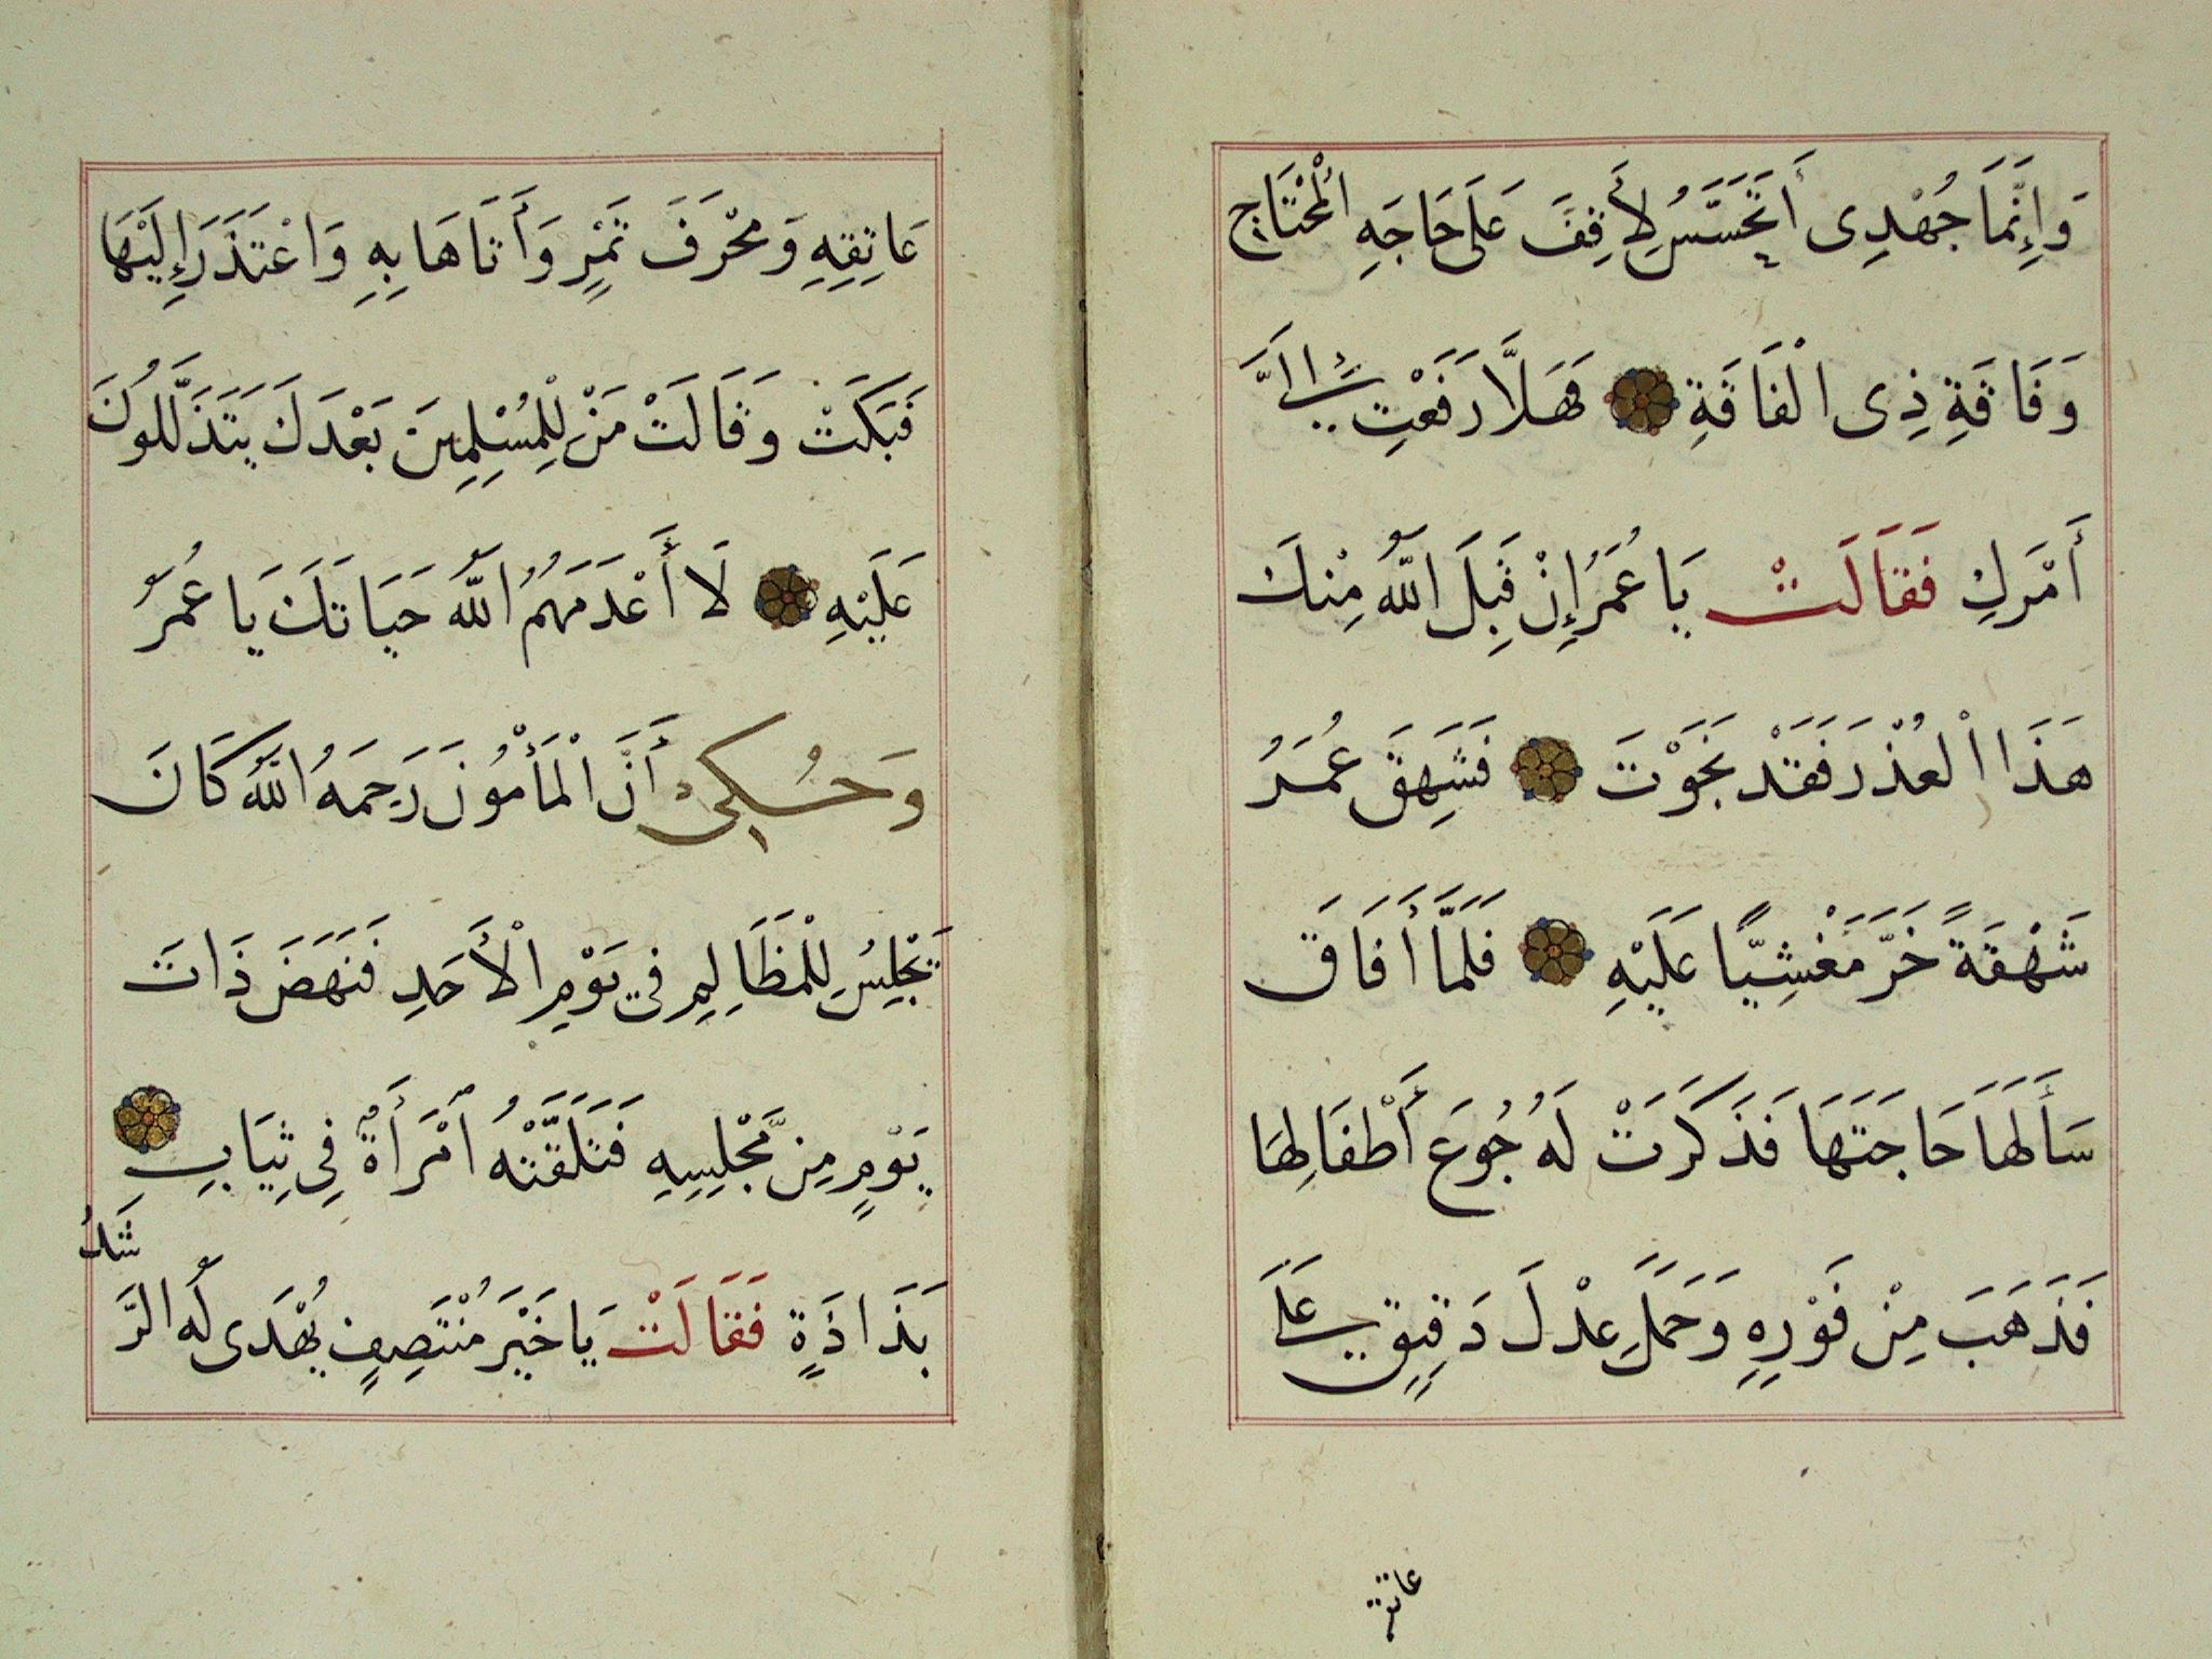 وَإِنَّمَا جُهْدِى أَتَحَسَّسُ لِأَقِفَ عَلَى حَاجَهِ الْمُحْتَاجِ
وَفَاقَةِ ذِى الْفَاقَةِ فَهَلَّا رَفَعْتِ إِلَىَّ
أَمْرَكِ فَقَالَتْ يَا عُمَرُ إِنْ قَبِلَ اللّٰهُ مِنْكَ
هَذَا الْعُذْرَ فَقَدْ نَجَوْتَ فَشَهِقَ عُمَرُ
شَهْقَةً خَرَّ مَغْشِيّاً عَلَيْهِ فَلَمَّا أَفَاقَ
سَأَلَهَا حَاجَتَهَا فَذَكَرَتْ لَهُ جُوعَ أَطْفَالِهَا
فَذَهَبَ مِنْ فَوْرِهِ وَحَمَلَ عِدْلَ دَقِيقٍ عَلَى
عاتقه
عَاتِقِهِ وَمَخْرَفَ تَمْرٍ وَأَتَاهَا بِهِ وَاعْتَذَرَ إِلَيْهَا
فَبَكَتْ وَقَالَتْ مَنْ لِلْمُسْلِمِينَ بَعْدَكَ يَتَذَلَّلُونَ
عَلَيْهِ لَا أَعْدَمَهُمُ اللّٰهُ حَيَاتَكَ يَا عُمَرُ
وَحُكِىَ أَنَّ الْمَأْمُونَ رَحِمَهُ اللّٰهُ كَانَ
يَجْلِسُ لِلْمَظَالِمِ فِي يَوْمِ الْأَحَدِ فَنَهَضَ ذَاتَ
يَوْمٍ مِنْ مَّجْلِسِهِ فَتَلَقَّتْهُ امْرَأَةٌ فِي ثِيَابٍ
بَذَاذَةٍ فَقَالَتْ يَا خَيْرَ مُنْتَصِفٍ يُهْدَى لَهُ الرَّشَدُ